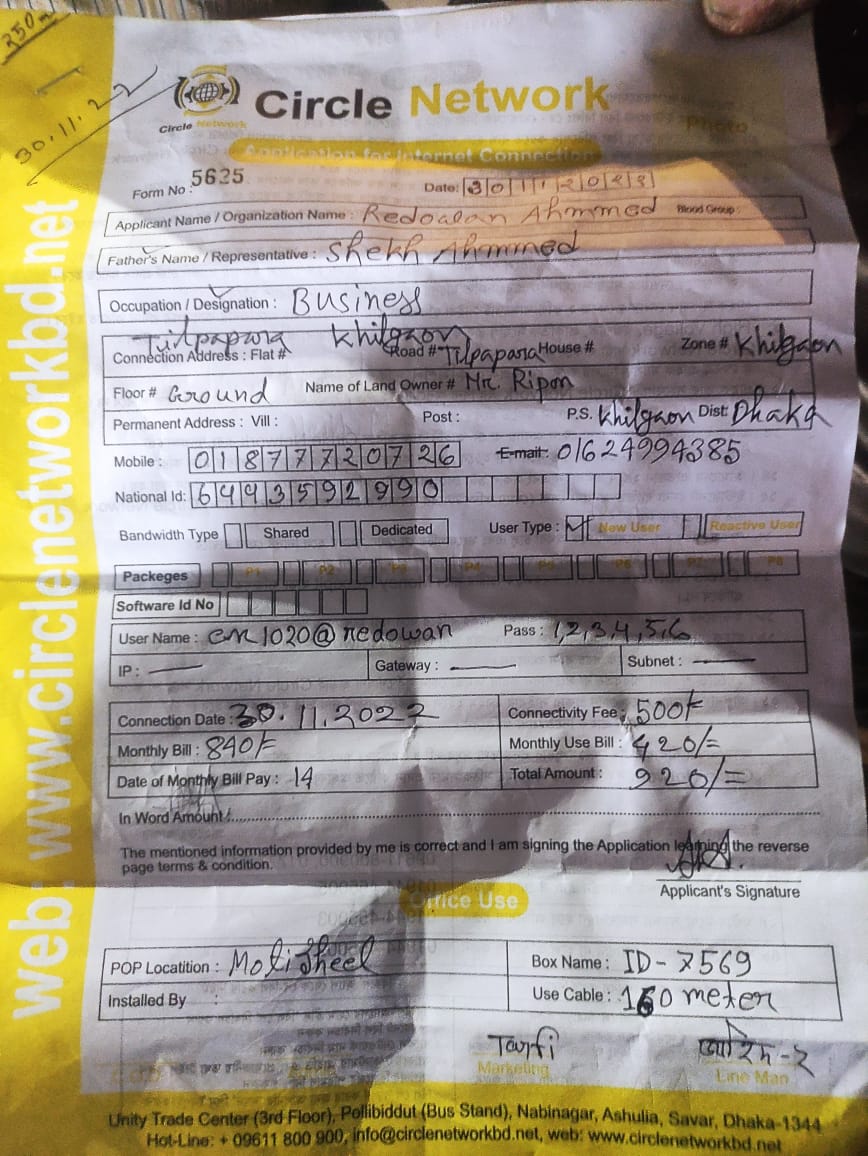 250 m
30.11.22
Circle Network
Circle Network
Photo
Application for Internet Connection
Form No : 5625 Date: 30112022
Applicant Name / Organization Name : Redoalan Ahmmed Blood Group:
Father's Name / Representative : Shekh Ahmmed
Occupation / Designation : Business
Tilpapara Khilgaon
Connection Address : Flat # Road # Tilpapara House # Zone # Khilgaon
Floor # Ground Name of Land Owner # Mr. Ripon
Permanent Address : Vill : Post : P.S. Khilgaon Dist: Dhaka
Mobile : 01877720726 E-mail : 01624994385
National Id: 6493592990
Bandwidth Type Shared Dedicated User Type : New User Reactive User
Packeges P1 P2 P3 P4 P5 P6 P7 P8
Software Id No
User Name : cn1020@redowan Pass : 1,2,3,4,5,6
IP : — Gateway : — Subnet : —
Connection Date : 30.11.2022 Connectivity Fee : 500/-
Monthly Bill : 840/- Monthly Use Bill : 420/=
Date of Monthly Bill Pay : 14 Total Amount : 920/=
In Word Amount :
The mentioned information provided by me is correct and I am signing the Application learning the reverse
page terms & condition.
Applicant's Signature
Office Use
POP Locatition : Motijheel Box Name : ID-7569
Installed By : Use Cable : 160 meter
Tarfi
Marketing Line Man
Unity Trade Center (3rd Floor), Pollibiddut (Bus Stand), Nabinagar, Ashulia, Savar, Dhaka-1344
Hot-Line: + 09611 800 900, info@circlenetworkbd.net, web: www.circlenetworkbd.net
web: www.circlenetworkbd.net